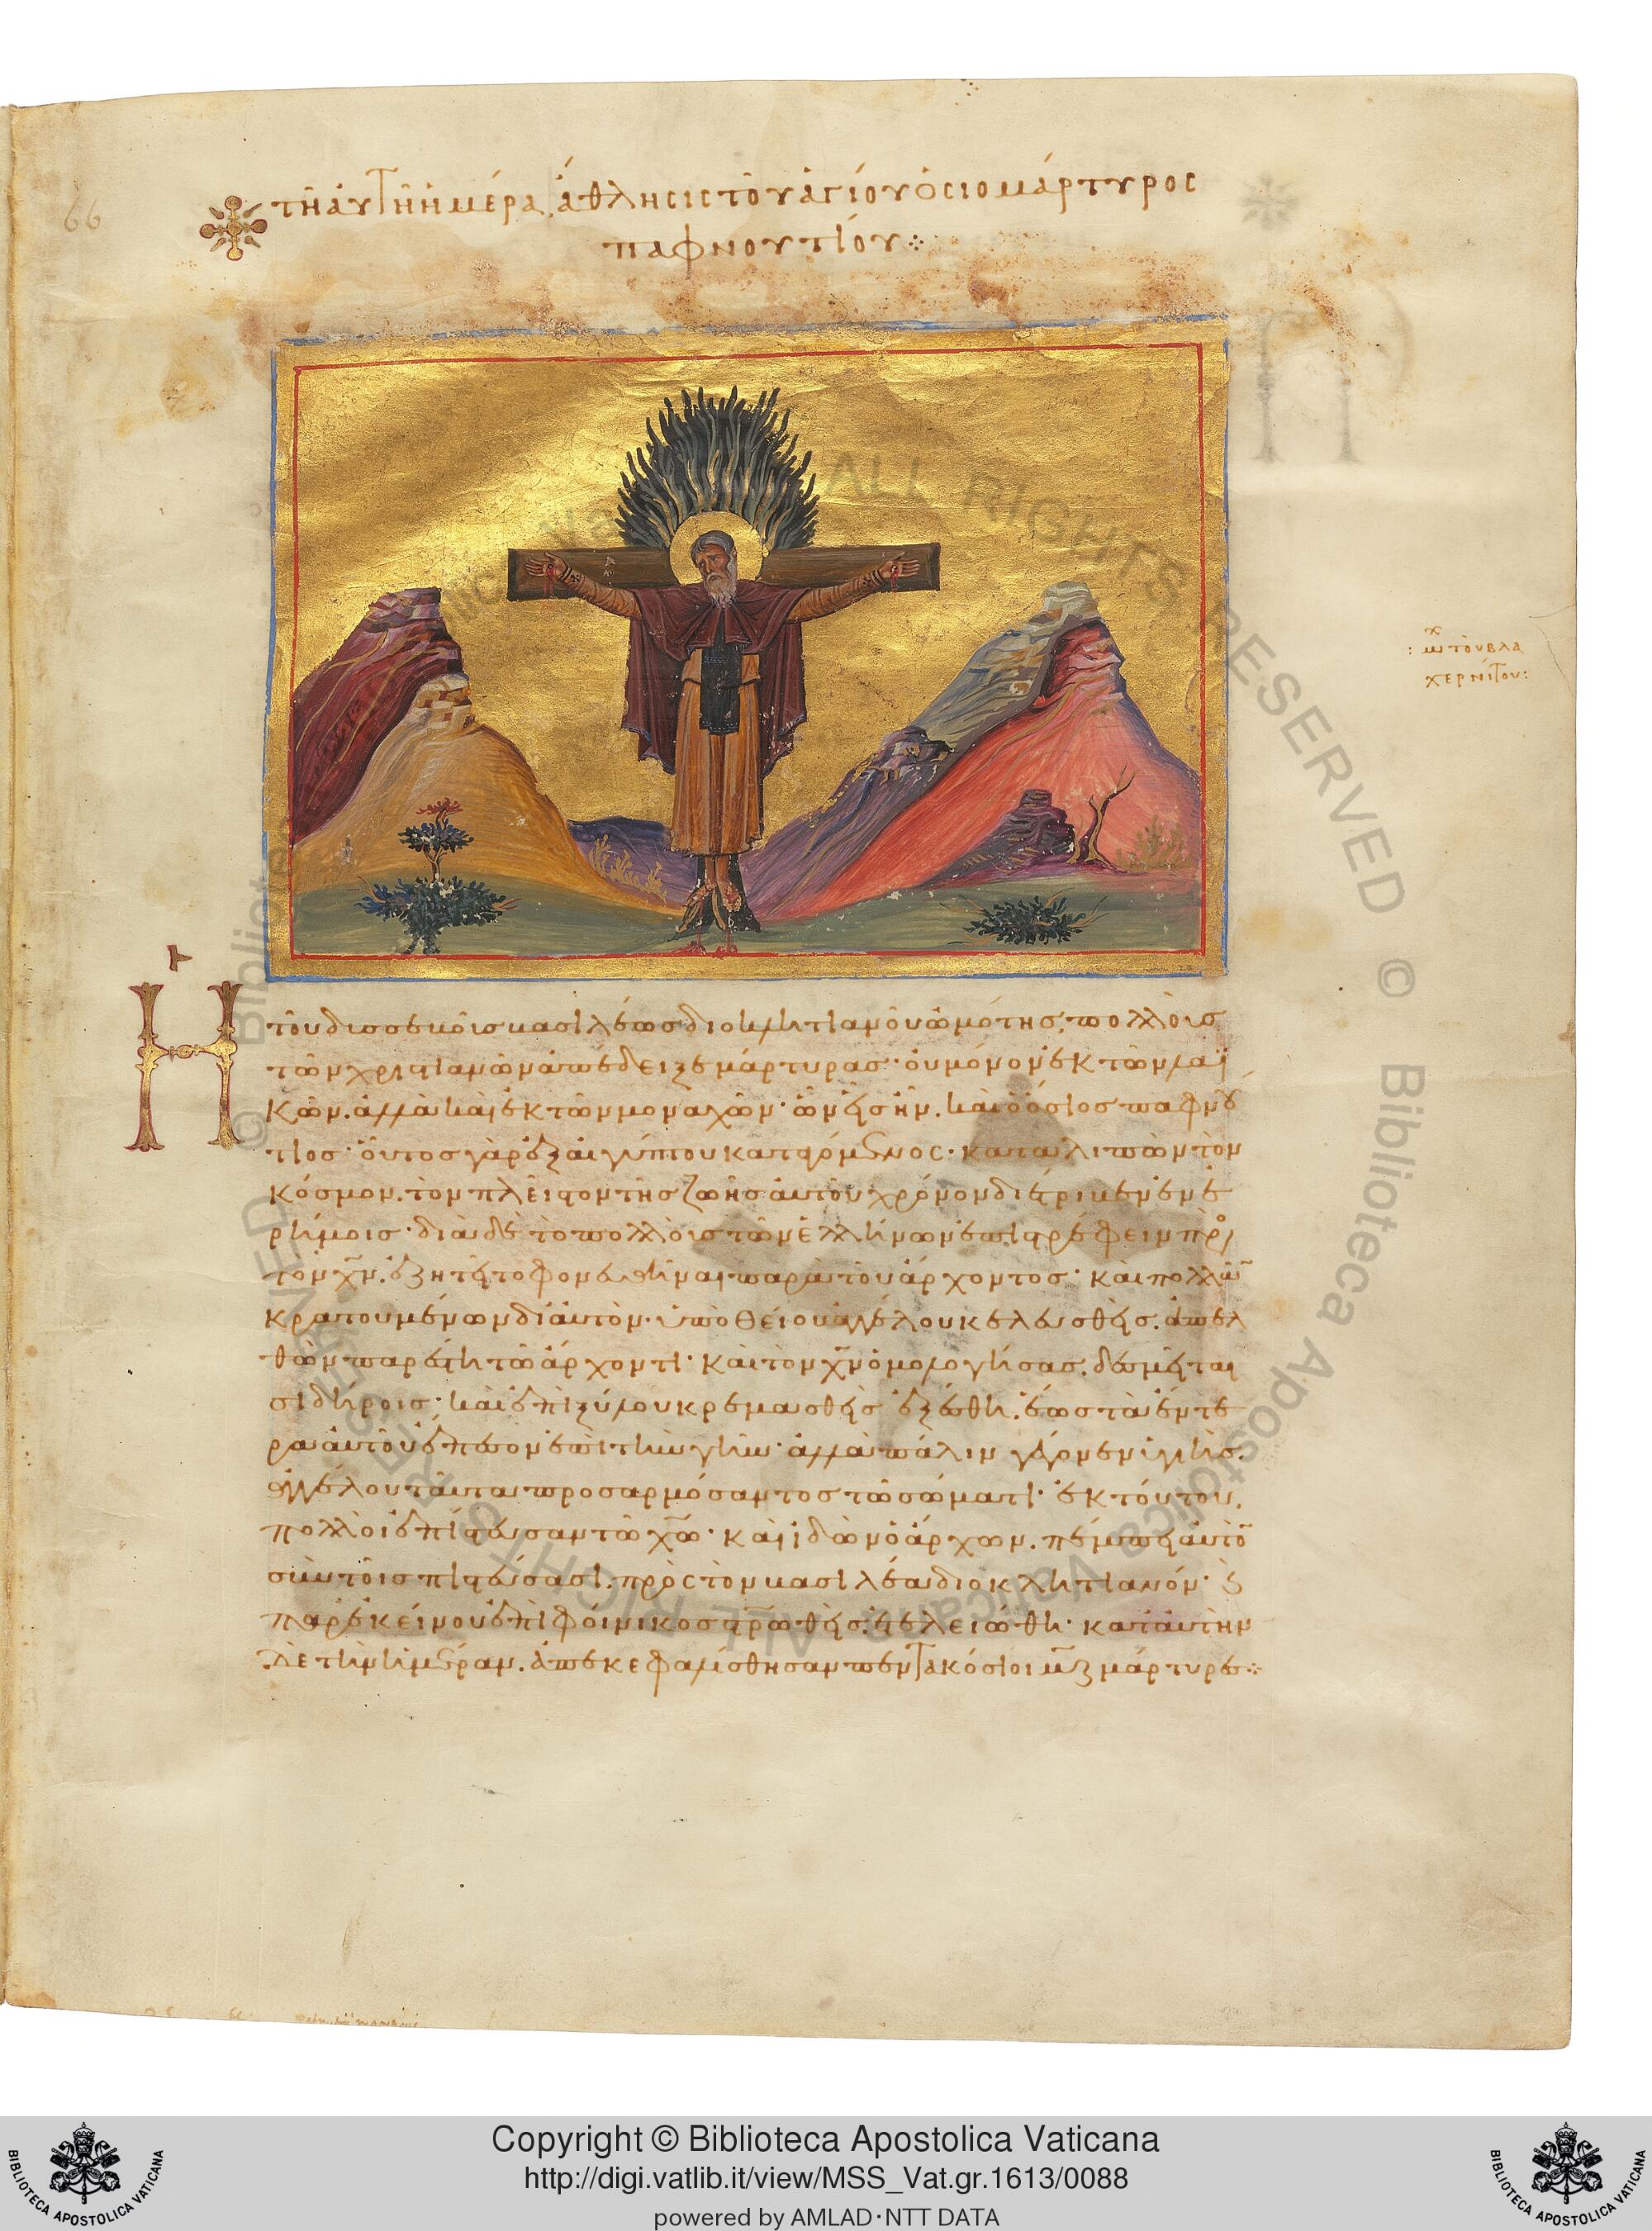 66
τῆ ἀυτῆ ἡμέρα, ἄθλησις τοῦ ἁγίου ὁσιομάρτυρος
παφνουτίου
: μι τοῦ βλα
χερνίτου:
Ἡ τοῦ δυσσεβοῦς βασιλέως διοκλητιανοῦ ὠμότης, πολλοὺς
τῶν χριστιανῶν ἀπέδειξε μάρτυρας· οὐ μόνον ἐκ τῶν λαϊ
κῶν, ἀλλὰ καὶ ἐκ τῶν μοναχῶν· ὧν εἷς ἦν, καὶ ὁ ὅσιος παφνού
τιος· οὗτος γὰρ ἐξ αἰγύπτου καταγόμενος· καταλιπὼν τὸν
κόσμον, τὸν πλεῖστον τῆς ζωῆς αὐτοῦ χρόνον διέτριβεν ἐν ἐ
ρήμοις· διὰ δὲ τὸ πολλοὺς τῶν ἑλλήνων ἐπιστρέφειν πρὸς
τὸν χν, ἐζητεῖτο φονευθῆναι παρὰ τοῦ ἄρχοντος· καὶ πολλῶν
κρατουμένων δι᾽ αὐτὸν· ὑπὸ θείου ἀγγέλου κελευσθεὶς, ἀπελ
θὼν παρέστη τῶ ἄρχοντι· καὶ τὸν χν ὁμολογήσας, δεσμεῖται
σιδήροις· καὶ ἐπὶ ξύλου κρεμασθεὶς ἐξέσθη, ἕως τὰ ἔντε
ρα αὐτοῦ ἔπεσον ἐπὶ τὴν γῆν· ἀλλὰ πάλιν γέγονεν ὑγιὴς,
ἀγγέλου ταῦτα προσαρμόσαντος τῶ σώματι· ἐκ τούτου,
πολλοὶ ἐπίστευσαν τῶ χω· καὶ ἰδὼν ὁ ἄρχων, πέμπει αὐτὸν
σὺν τοῖς πιστεύσασι, πρὸς τὸν βασιλέα διοκλητιανόν· καὶ
παρ᾽ ἐκείνου ἐπὶ φοίνικος στρωθεὶς, ἐτελειώθη· κατ᾽ αὐτὴν
δὲ τὴν ἡμέραν, ἀπεκεφαλίσθησαν πεντακόσιοι μζ μάρτυρες
Copyright © Biblioteca Apostolica Vaticana
http://digi.vatlib.it/view/MSS_Vat.gr.1613/0088
powered by AMLAD·NTT DATA
BIBLIOTECA APOSTOLICA VATICANA
BIBLIOTECA APOSTOLICA VATICANA